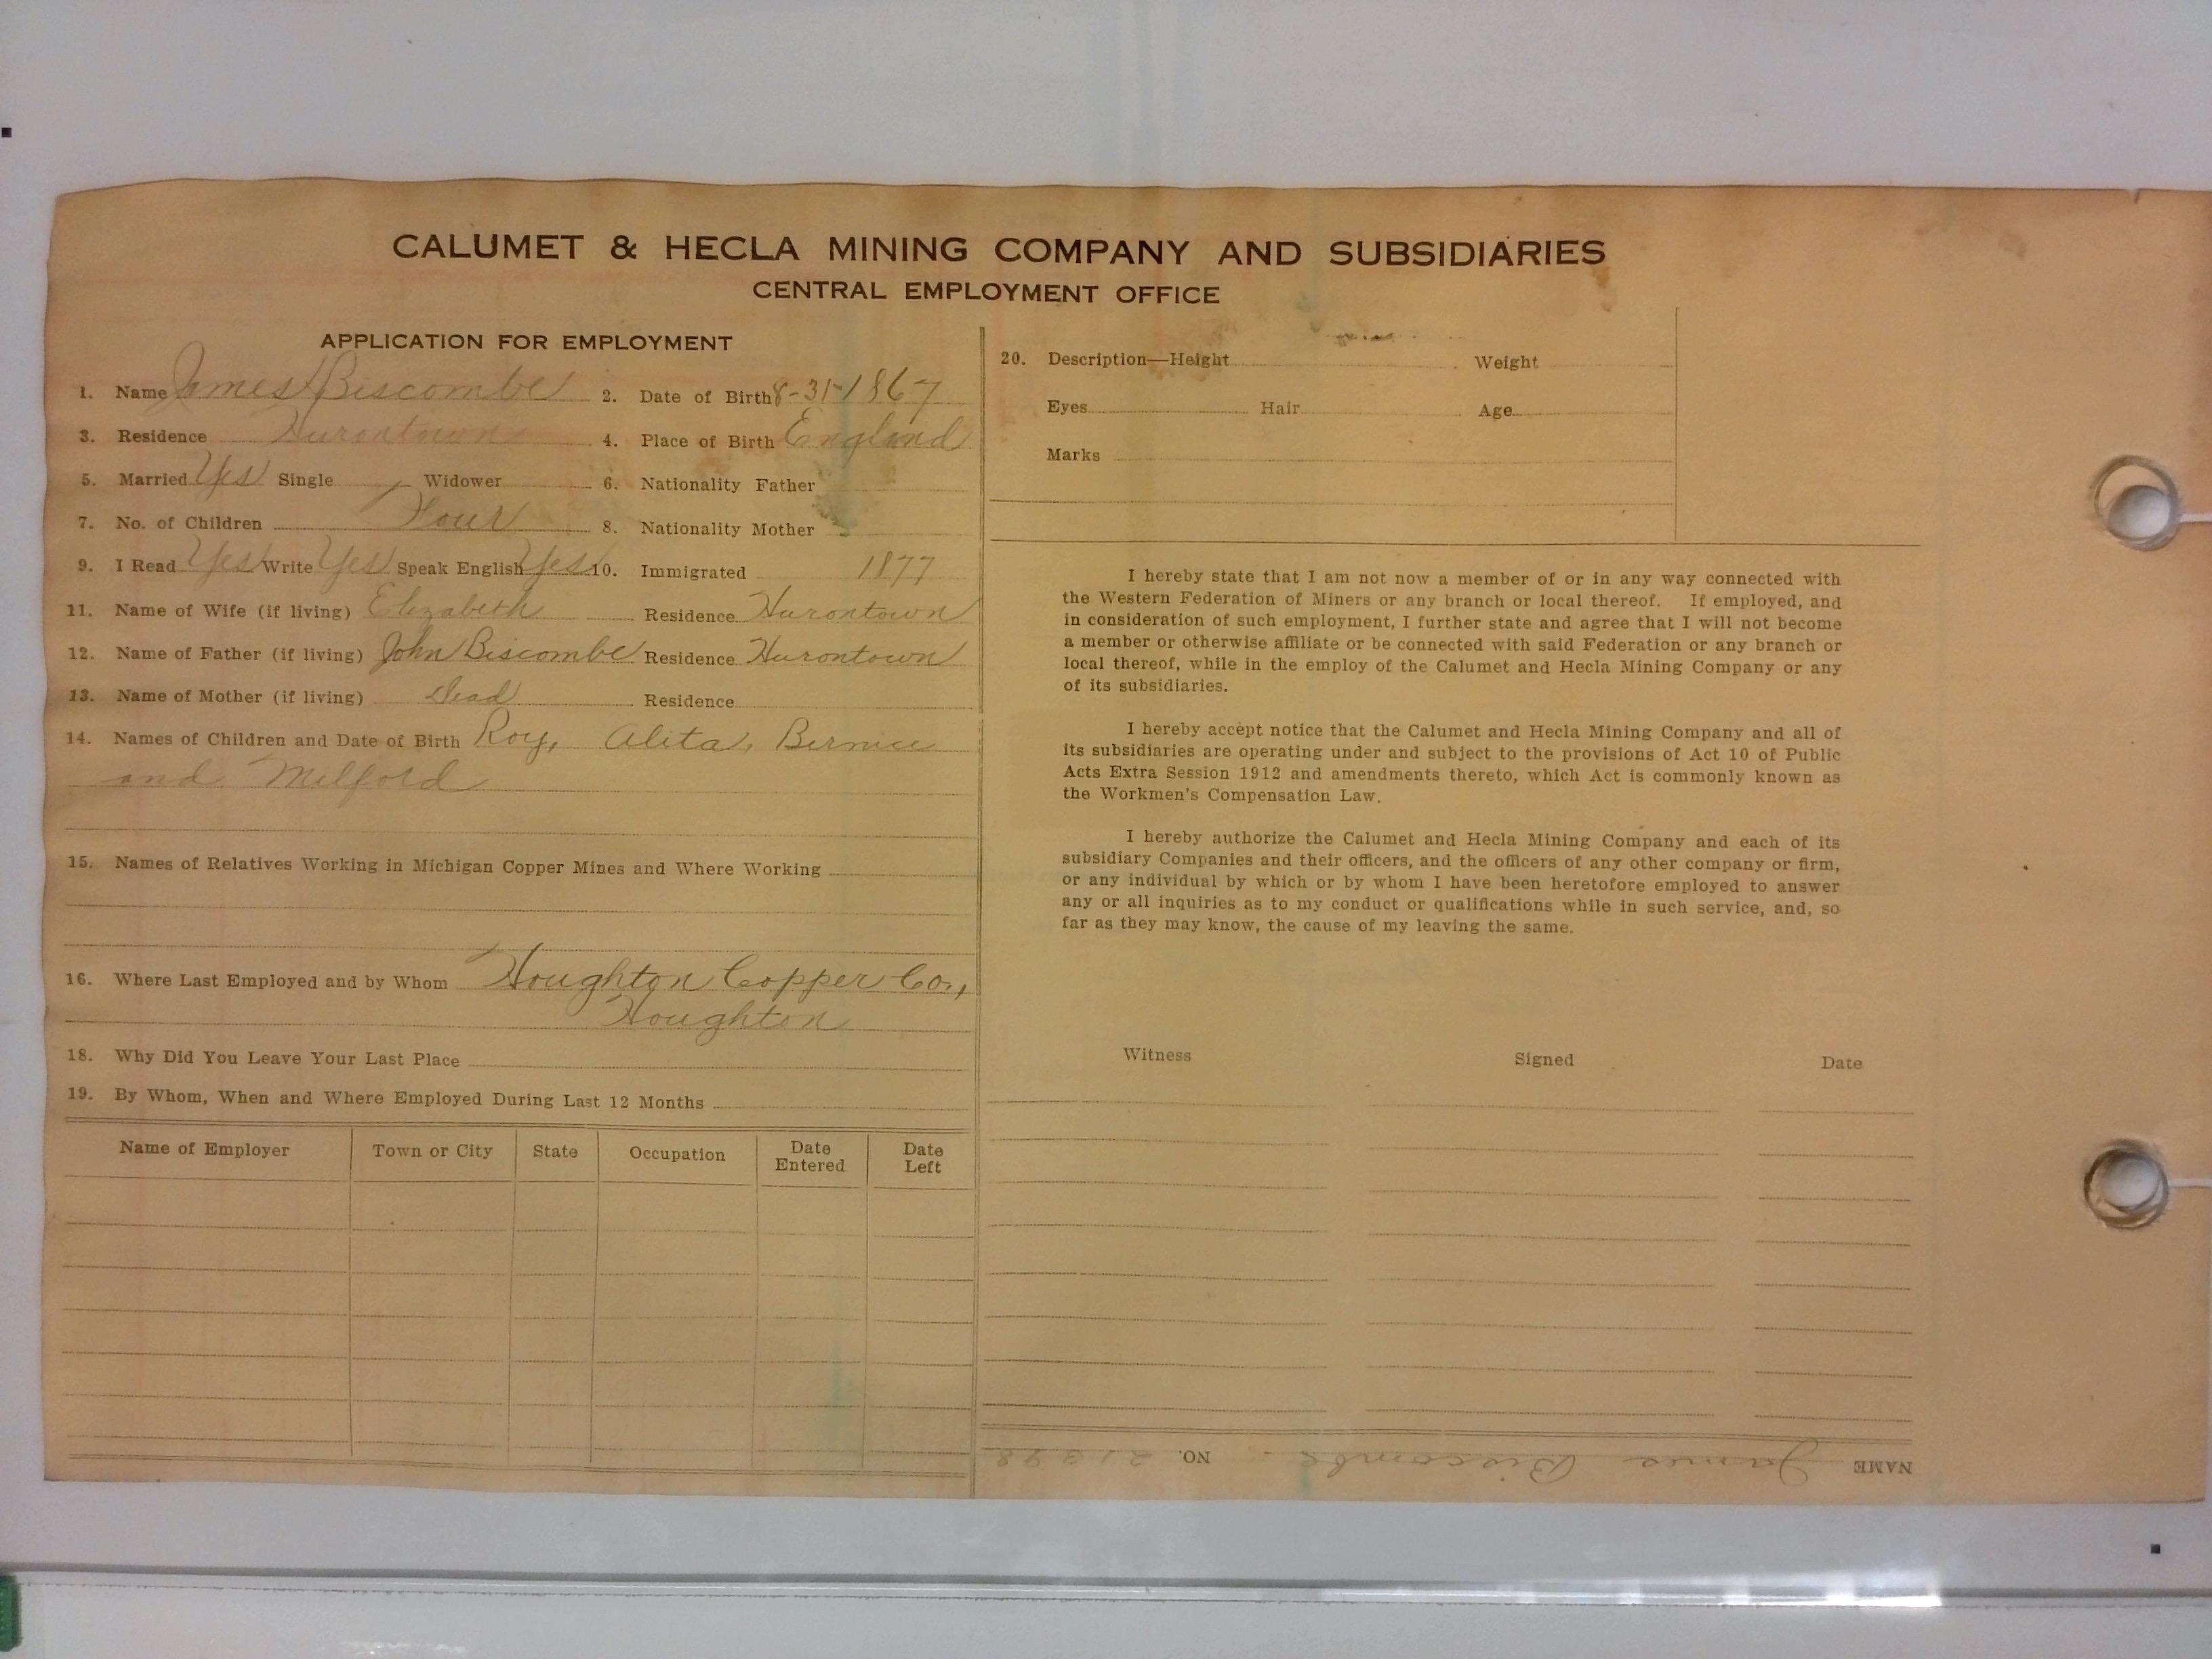 CALUMET & HECLA MINING COMPANY AND SUBSIDIARIES
CENTRAL EMPLOYMENT OFFICE
APPLICATION FOR EMPLOYMENT
1. Name James Biscombe 2. Date of Birth 8-31-1867
3. Residence Hurontown 4. Place of Birth England
5. Married Yes Single Widower 6. Nationality Father
7. No. of Children Four 8. Nationality Mother
9. I Read Yes Write Yes Speak English Yes 10. Immigrated 1877
11. Name of Wife (if living) Elizabeth Residence Hurontown
12. Name of Father (if living) John Biscombe Residence Hurontown
13. Name of Mother (if living) Dead Residence
14. Names of Children and Date of Birth Roy, Alita, Bernice
and Milford
15. Names of Relatives Working in Michigan Copper Mines and Where Working
16. Where Last Employed and by Whom Houghton Copper Co.,
Houghton
18. Why Did You Leave Your Last Place
19. By Whom, When and Where Employed During Last 12 Months
Name of Employer Town or City State Occupation Date Entered Date Left
20. Description—Height Weight
Eyes Hair Age
Marks
I hereby state that I am not now a member of or in any way connected with
the Western Federation of Miners or any branch or local thereof. If employed, and
in consideration of such employment, I further state and agree that I will not become
a member or otherwise affiliate or be connected with said Federation or any branch or
local thereof, while in the employ of the Calumet and Hecla Mining Company or any
of its subsidiaries.
I hereby accept notice that the Calumet and Hecla Mining Company and all of
its subsidiaries are operating under and subject to the provisions of Act 10 of Public
Acts Extra Session 1912 and amendments thereto, which Act is commonly known as
the Workmen's Compensation Law.
I hereby authorize the Calumet and Hecla Mining Company and each of its
subsidiary Companies and their officers, and the officers of any other company or firm,
or any individual by which or by whom I have been heretofore employed to answer
any or all inquiries as to my conduct or qualifications while in such service, and, so
far as they may know, the cause of my leaving the same.
Witness Signed Date
NAME James Biscombe. NO.